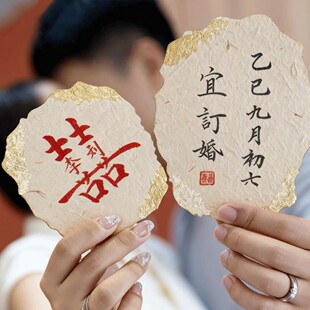 囍
李 刘
乙巳九月初六
宜訂婚